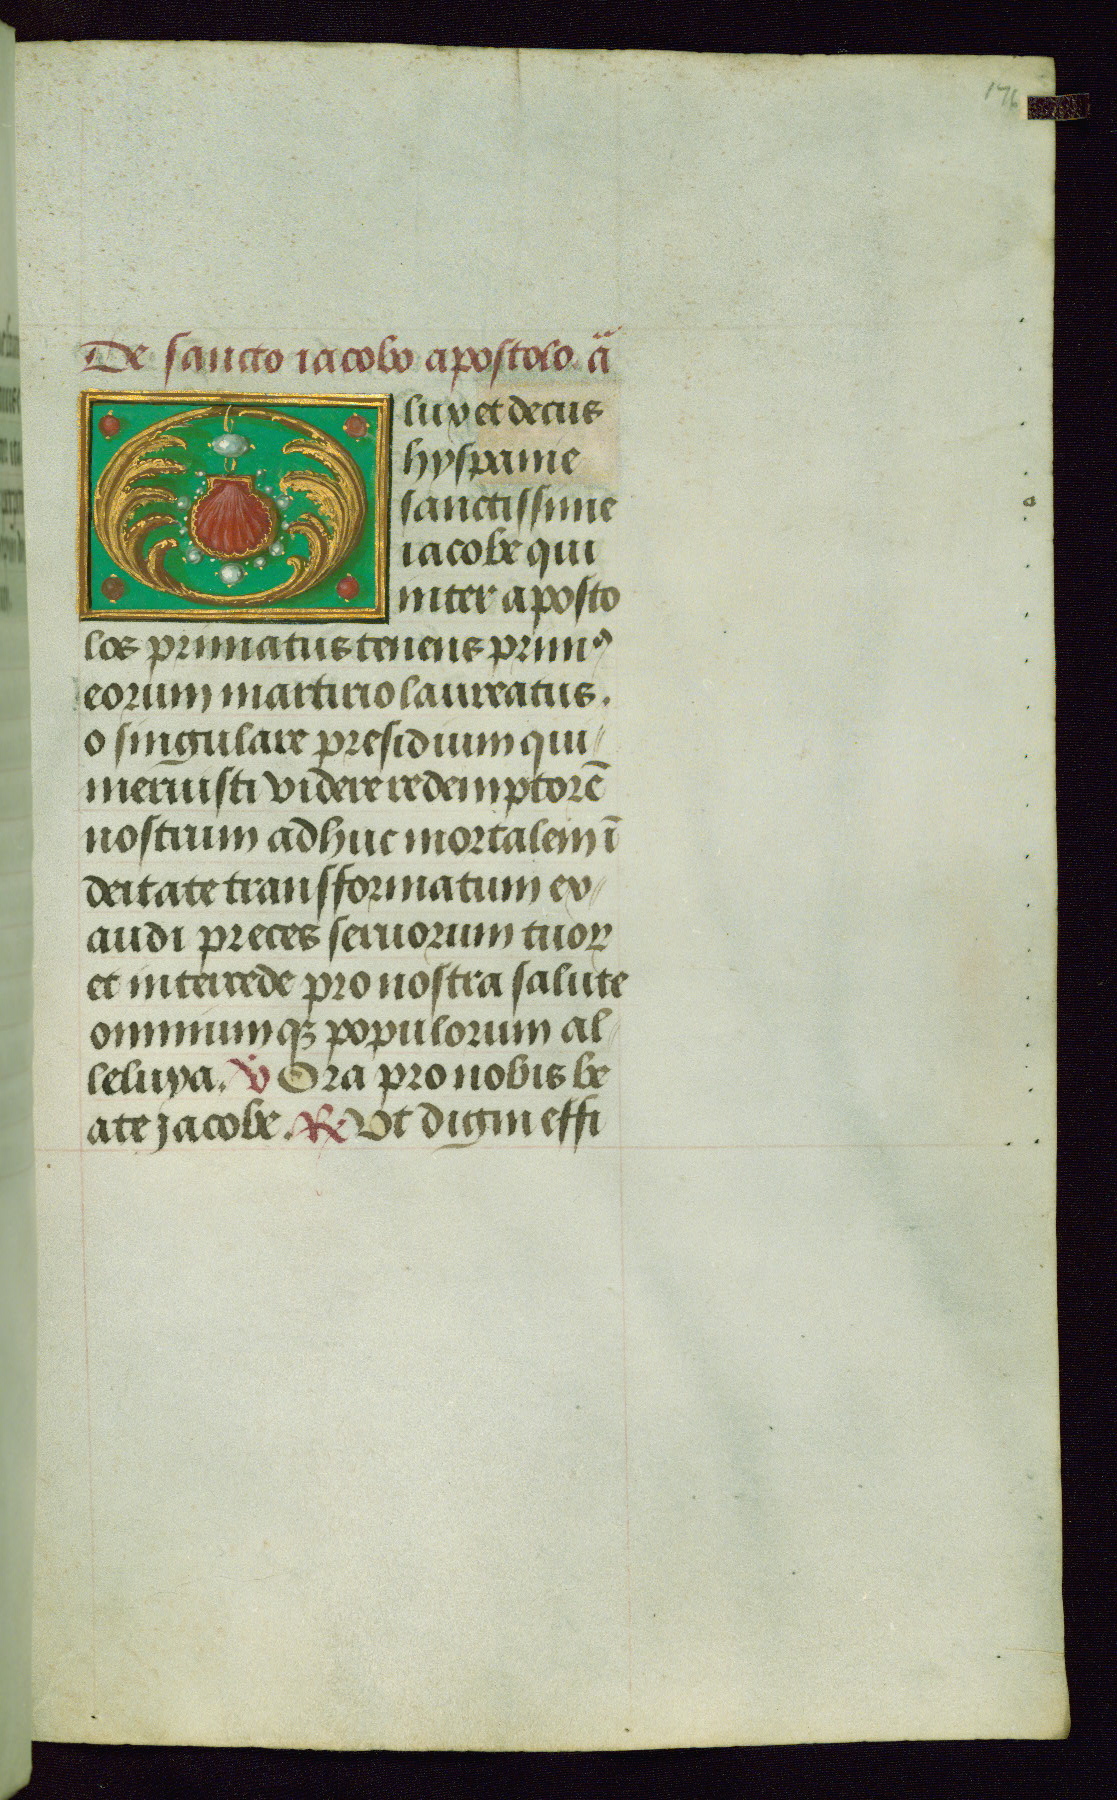 176
De sancto iacobo apostolo. añ
O lux et decus
hyspanie
sanctissime
iacobe qui
inter aposto
los primatus tenens primꝰ
eorum martirio laureatus.
o singulare presidium qui
meruisti videre redemptorē
nostrum adhuc mortalem ī
deitate transformatum ex
audi preces seruorum tuoꝝ
et intercede pro nostra salute
omniumqꝫ populorum al
leluya. ℣ Ora pro nobis be
ate jacobe. ℟ Vt digni effi